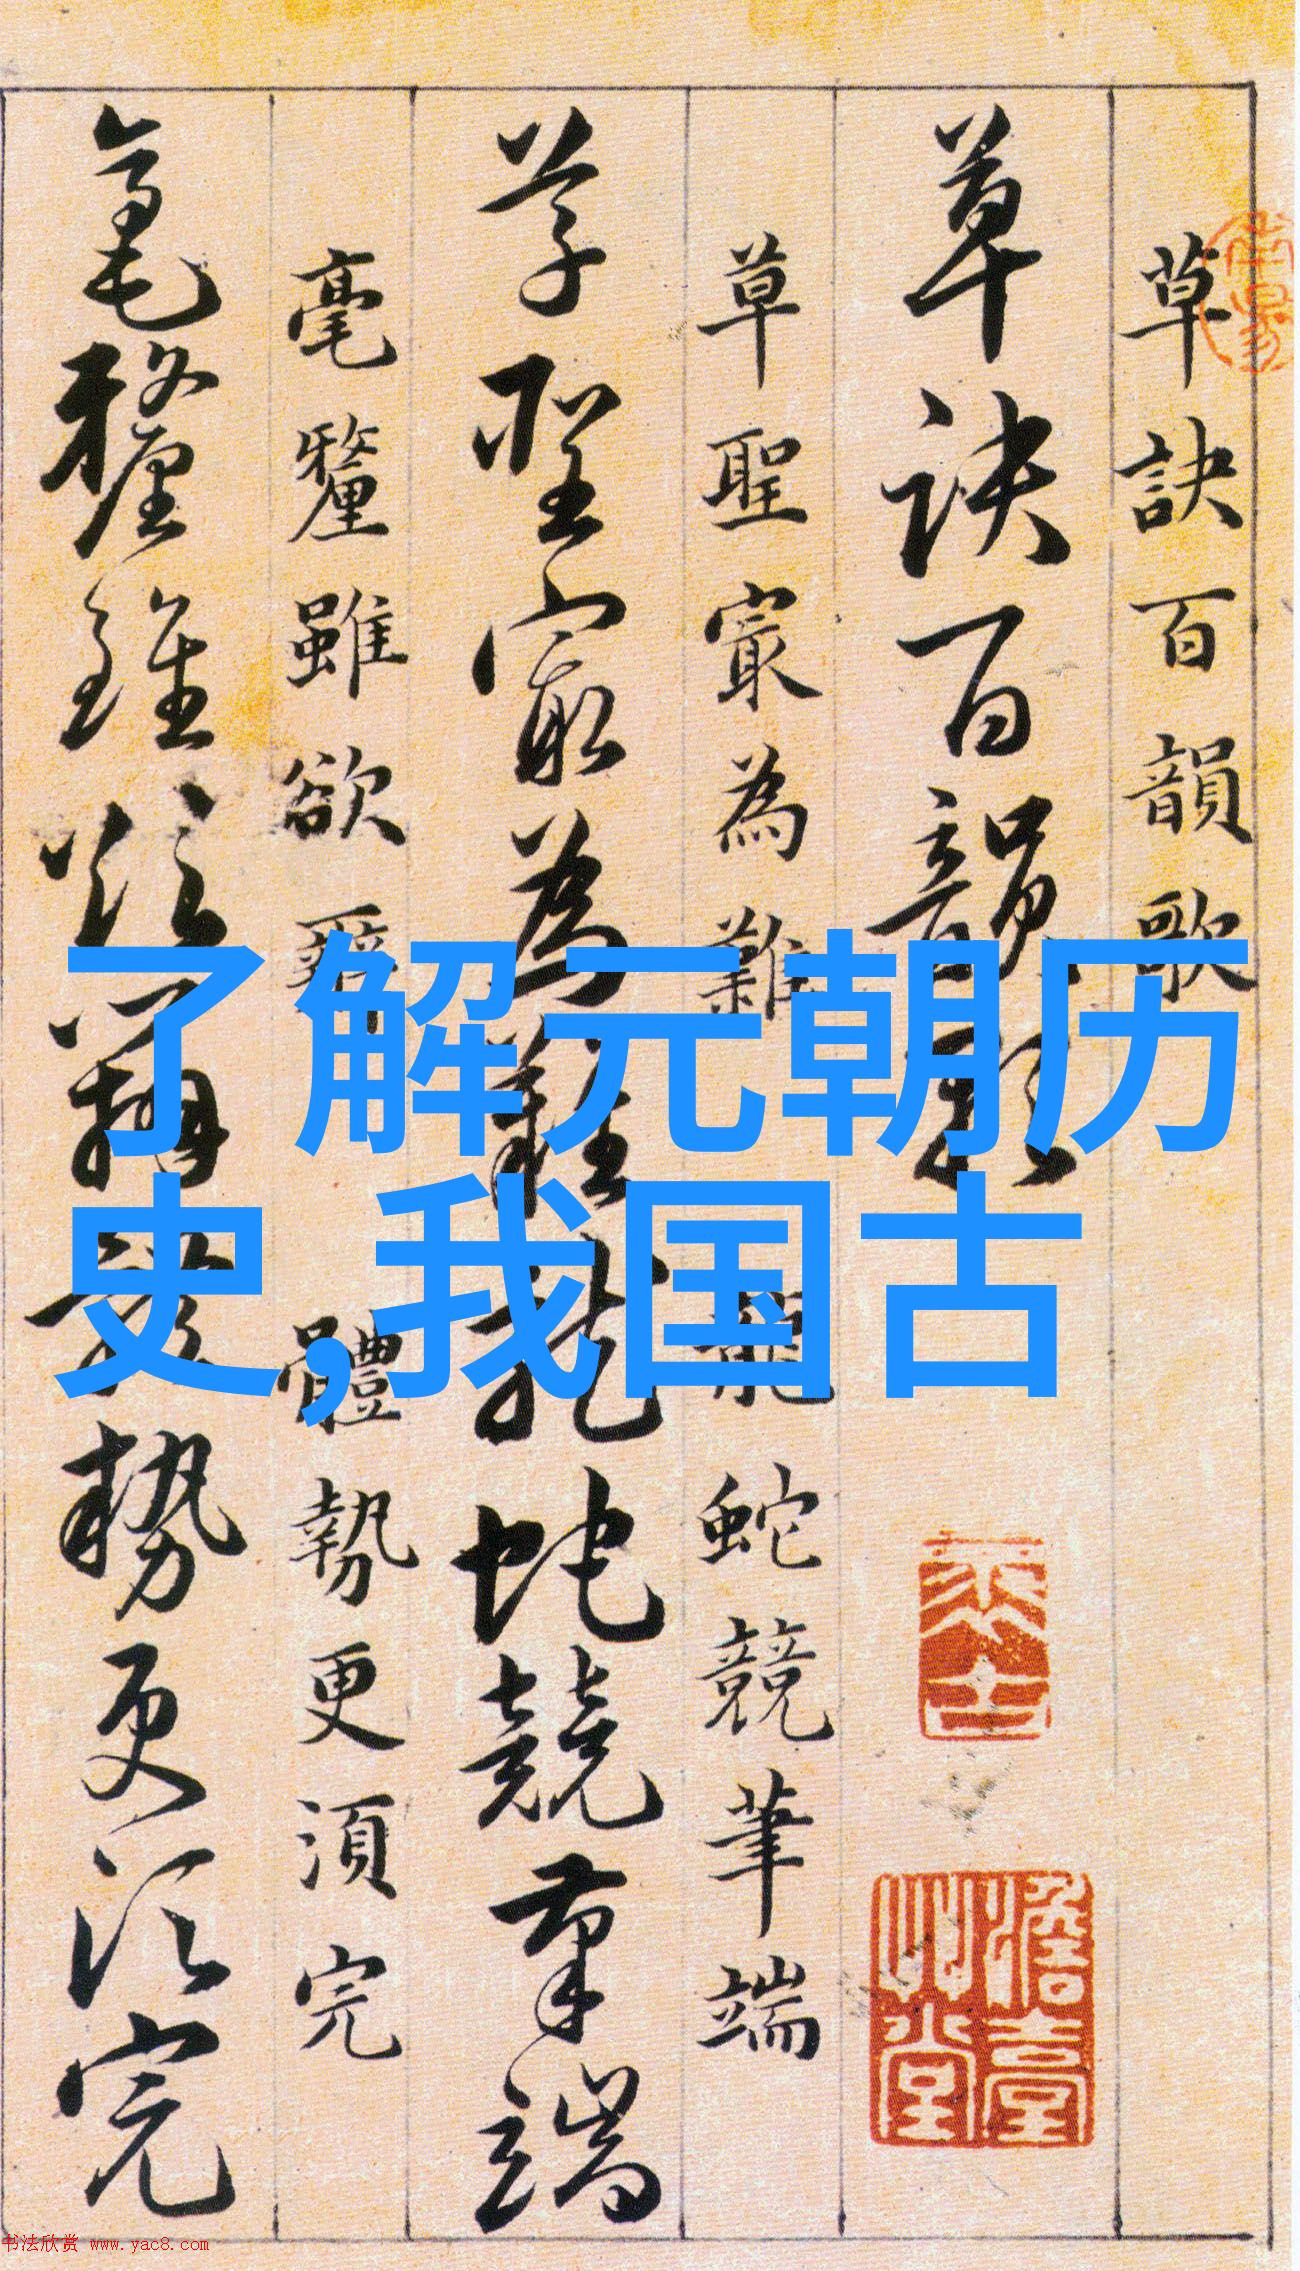 草訣百韻歌
草訣百韻歌
草聖寂為難 龍蛇競筆端
草聖寂為難龍蛇競筆端
毫釐雖欲辨 體勢更須完
毫釐雖欲辨體勢更須完
了解元朝历
史,我国古
书法欣赏 www.yac8.com